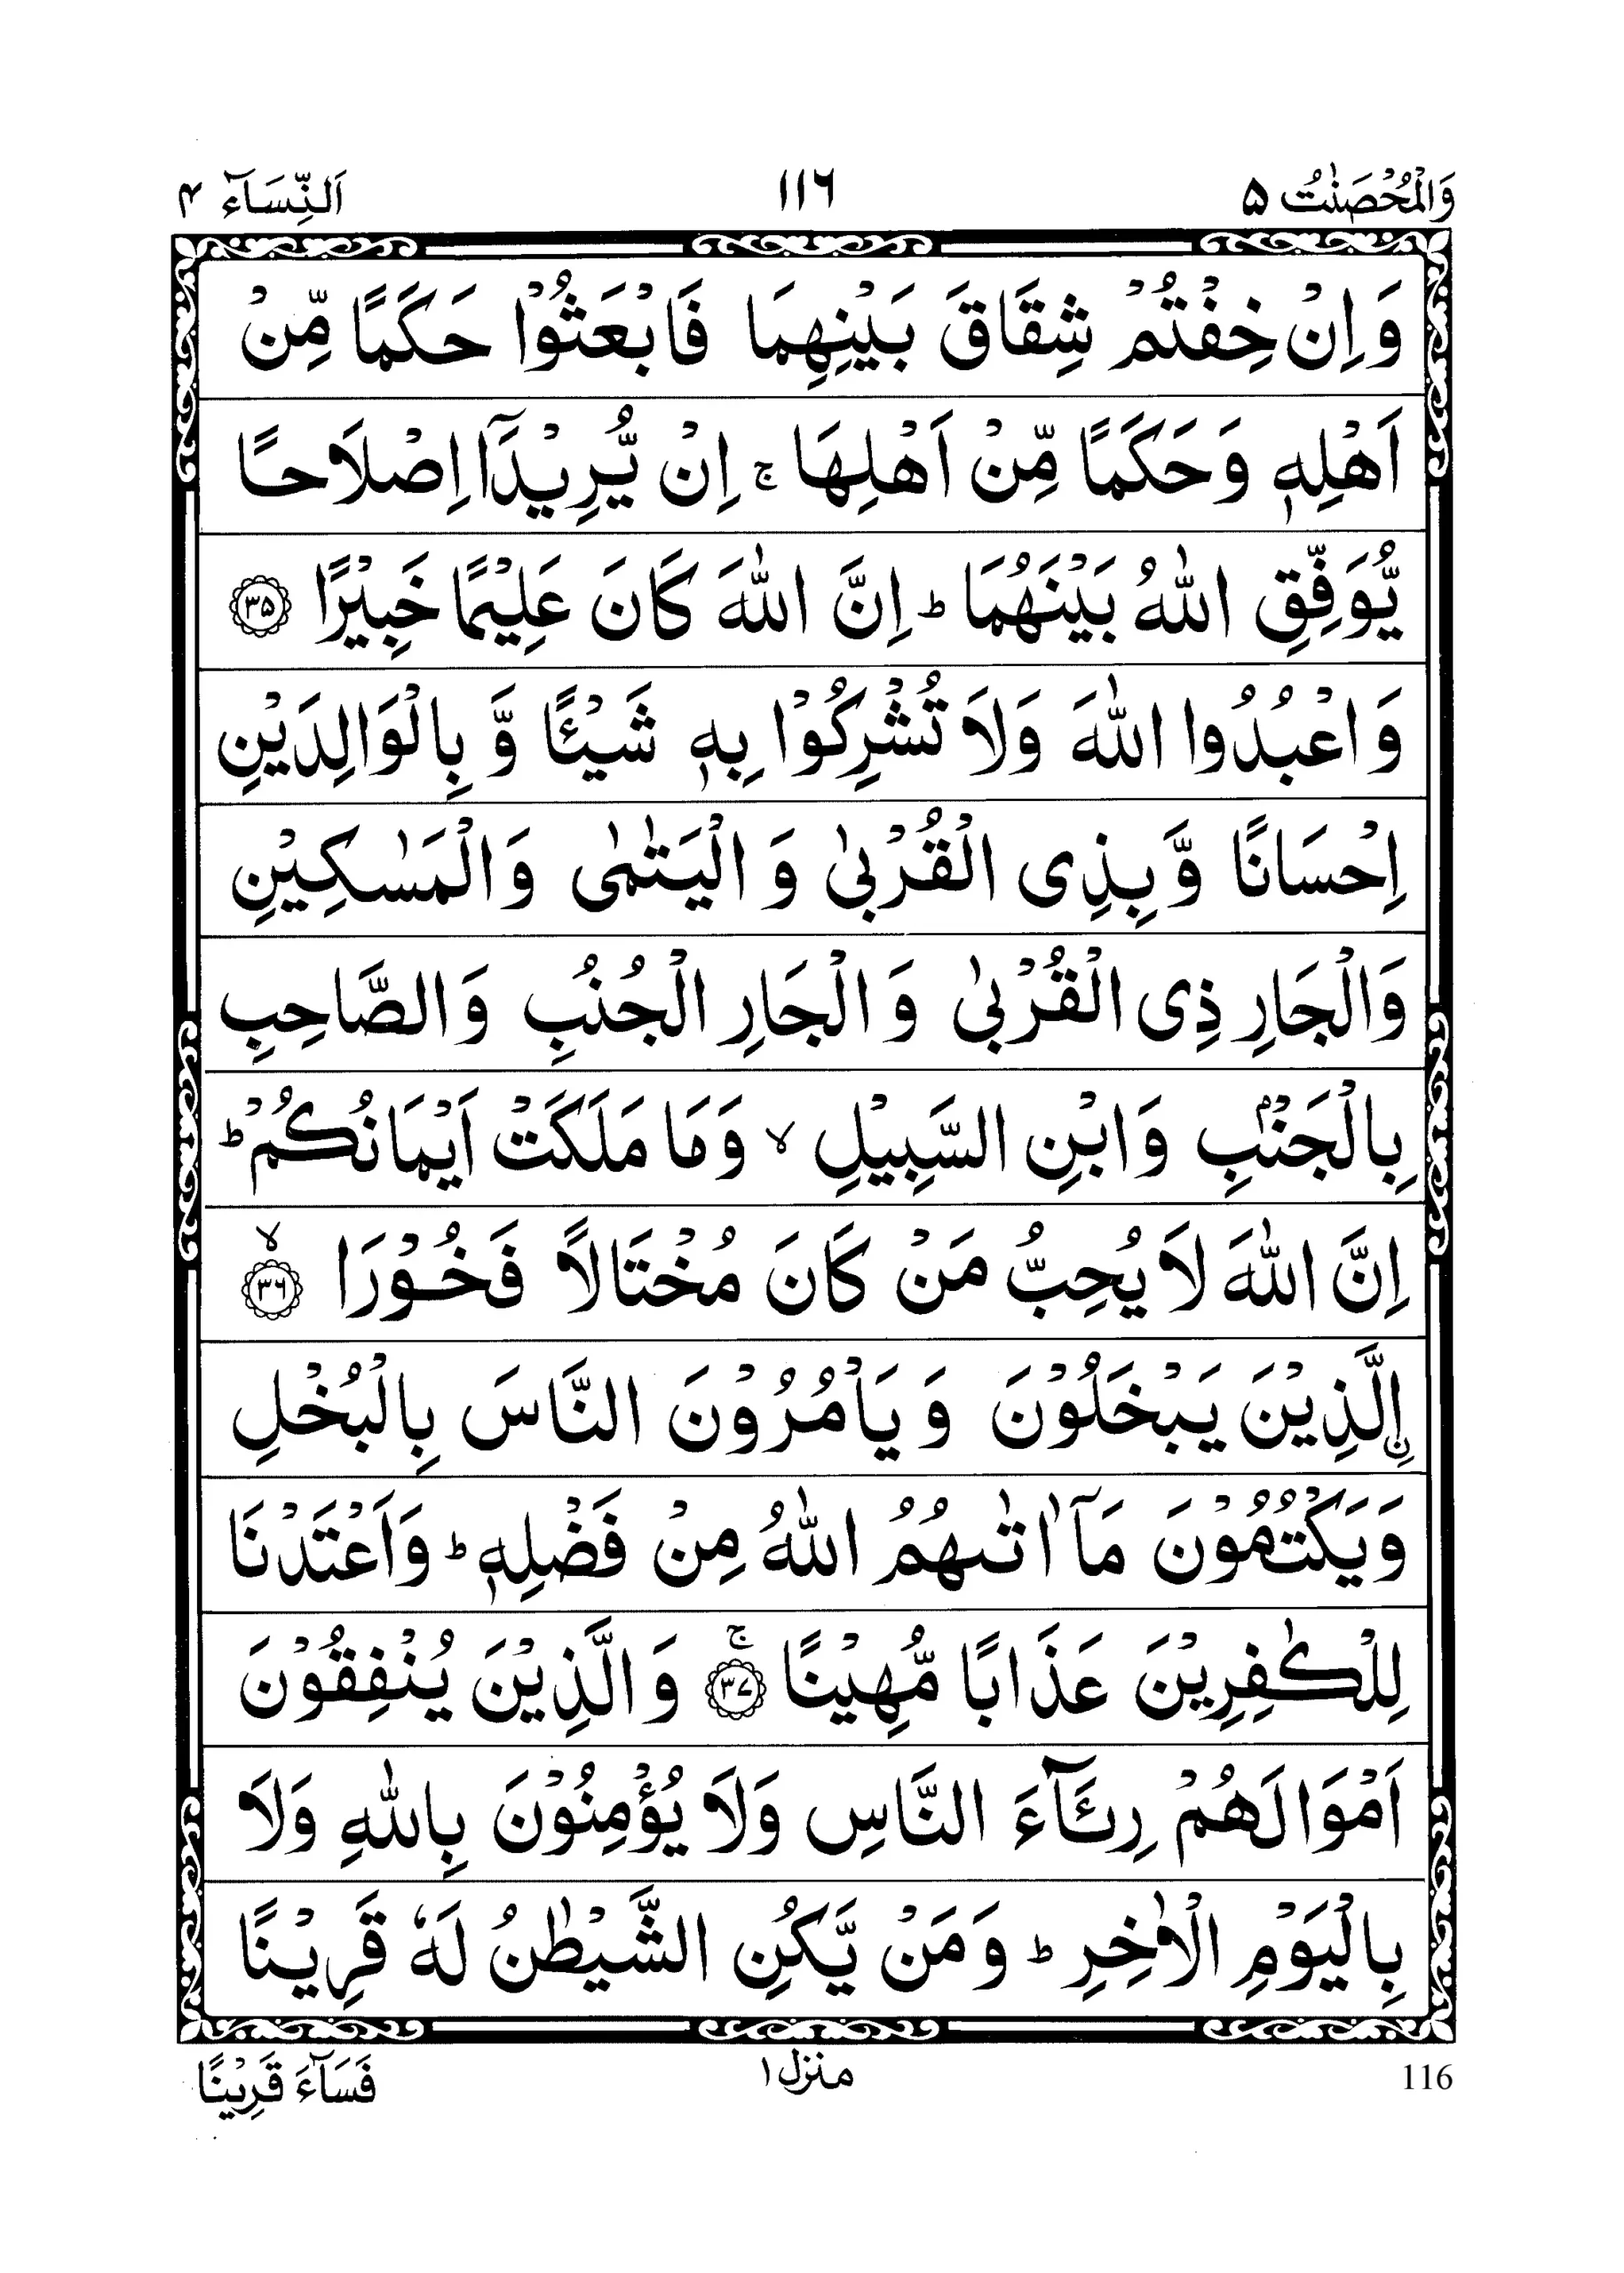 وَالْمُحْصَنٰتُ ۵ ١١٦ اَلنِّسَآء ۴
وَاِنْ خِفْتُمْ شِقَاقَ بَيْنِهِمَا فَابْعَثُوْا حَكَمًا مِّنْ
اَهْلِهٖ وَحَكَمًا مِّنْ اَهْلِهَا ۚ اِنْ يُّرِيْدَآ اِصْلَاحًا
يُّوَفِّقِ اللّٰهُ بَيْنَهُمَا ؕ اِنَّ اللّٰهَ كَانَ عَلِيْمًا خَبِيْرًا ﴿۳۵﴾
وَاعْبُدُوا اللّٰهَ وَلَا تُشْرِكُوْا بِهٖ شَيْئًا وَّ بِالْوَالِدَيْنِ
اِحْسَانًا وَّبِذِى الْقُرْبٰى وَ الْيَتٰمٰى وَالْمَسٰكِيْنِ
وَالْجَارِ ذِى الْقُرْبٰى وَ الْجَارِ الْجُنُبِ وَالصَّاحِبِ
بِالْجَنْۢبِ وَابْنِ السَّبِيْلِ ۙ وَمَا مَلَكَتْ اَيْمَانُكُمْ ؕ
اِنَّ اللّٰهَ لَا يُحِبُّ مَنْ كَانَ مُخْتَالًا فَخُوْرَا ﴿۳۶﴾ ۙ
اۨلَّذِيْنَ يَبْخَلُوْنَ وَ يَاْمُرُوْنَ النَّاسَ بِالْبُخْلِ
وَيَكْتُمُوْنَ مَاۤ اٰتٰٮهُمُ اللّٰهُ مِنْ فَضْلِهٖ ؕ وَاَعْتَدْنَا
لِلْكٰفِرِيْنَ عَذَابًا مُّهِيْنًا ﴿۳۷﴾ ۚ وَ الَّذِيْنَ يُنْفِقُوْنَ
اَمْوَالَهُمْ رِئَآءَ النَّاسِ وَلَا يُؤْمِنُوْنَ بِاللّٰهِ وَلَا
بِالْيَوْمِ الْاٰخِرِ ؕ وَمَنْ يَّكُنِ الشَّيْطٰنُ لَهٗ قَرِيْنًا
فَسَآءَ قَرِيْنًا منزل ١ 116